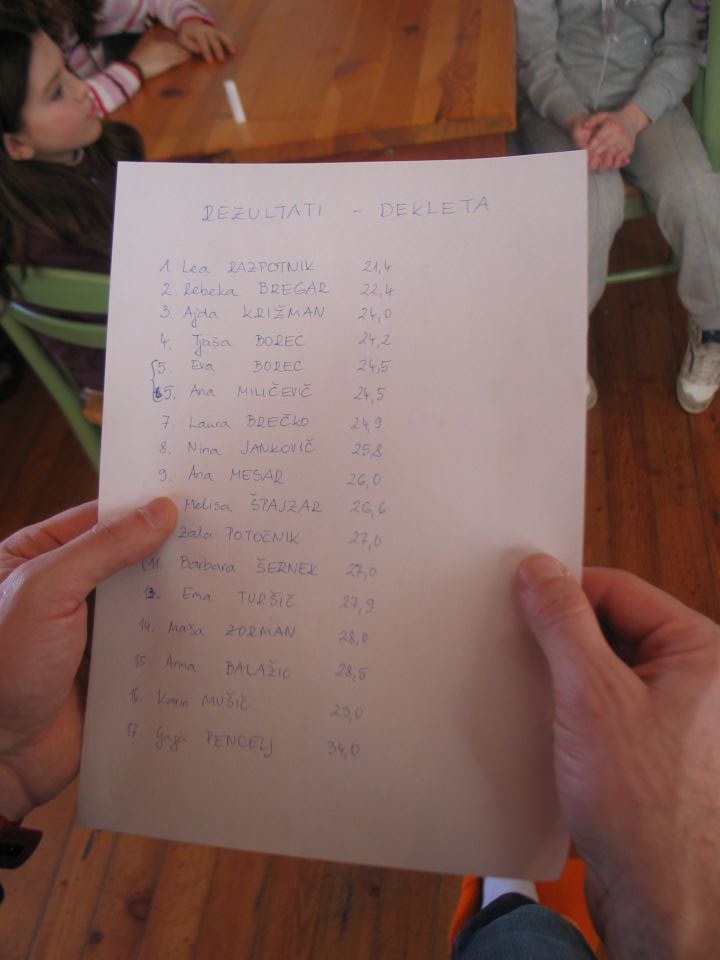 REZULTATI - DEKLETA
1. Lea RAZPOTNIK 21,4
2. Rebeka BREGAR 22,4
3. Ajda KRIŽMAN 24,0
4. Tjaša BOREC 24,2
5. Eva BOREC 24,5
5. Ana MILIČEVIČ 24,5
7. Laura BREČKO 24,9
8. Nina JANKOVIČ 25,8
9. Ana MESAR 26,0
Melisa ŠPAJZAR 26,6
Zala POTOČNIK 27,0
11. Barbara ŠERNEK 27,0
13. Ema TURŠIČ 27,9
14. Maša ZORMAN 28,0
15. Anna BALAŽIC 28,5
16. Karin MUŠIČ 29,0
17. Gaja PENCELJ 34,0